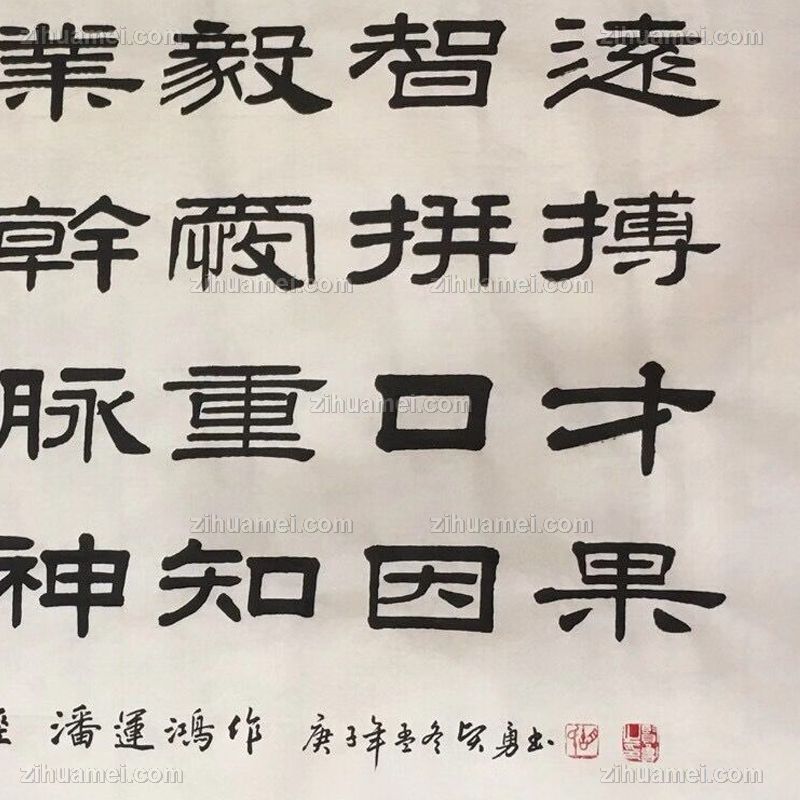 zihuamei.com zihuamei.com zihuamei.com
業毅智遠
幹愛拼搏
zihuamei.com zihuamei.com
脉重口才
zihuamei.com
zihuamei.com zihuamei.com
神知因果
潘運鴻作 庚子年孟冬 勇书
zihuamei.com zihuamei.com zihuamei.com